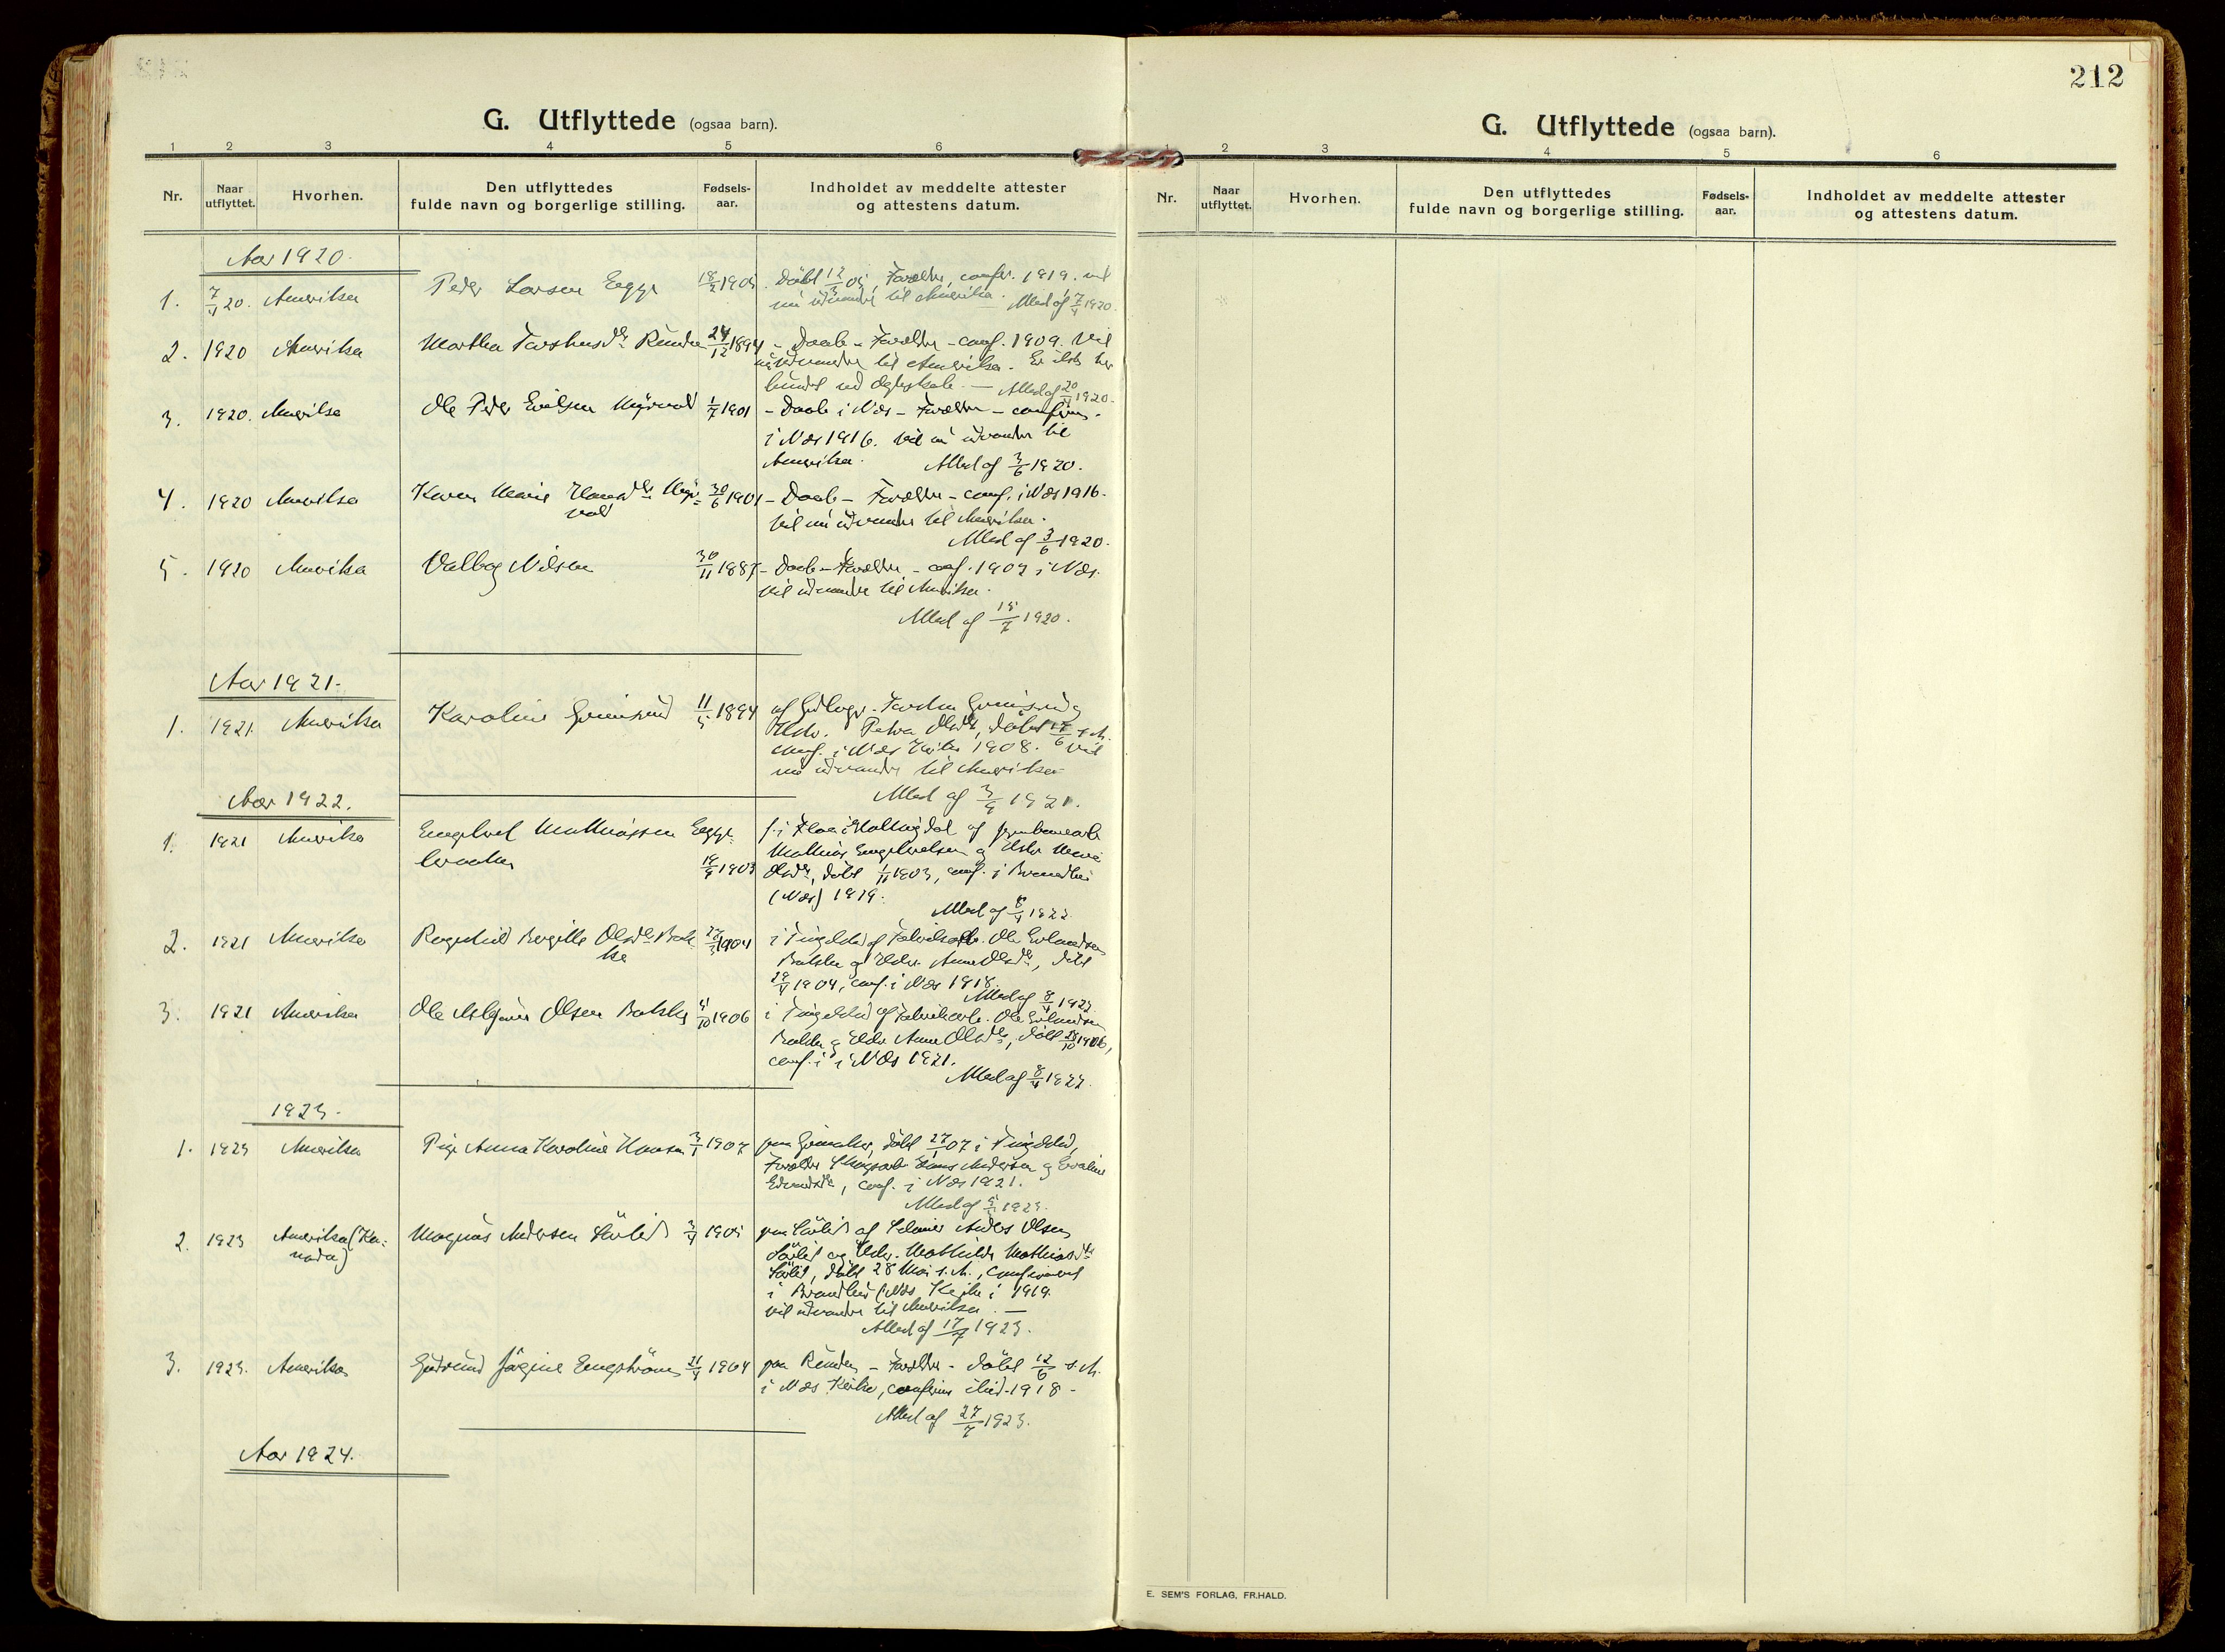 212
G. Utflyttede (ogsaa barn).
1 2 3 4 5 6
Nr. Naar utflyttet. Hvorhen. Den utflyttedes fulde navn og borgerlige stilling. Fødsels-aar. Indholdet av meddelte attester og attestens datum.
Aar 1920.
1. 7/4 20. Amerika Peder Larsen Egge 18/2 1905. Døbt 12/3 05, Forældre, confir. 1919. vil
nu udvandre til Amerika. Att. af 7/4 1920.
2. 1920 Amerika Martha Torstensdtr 24/12 1894 - Daab - Forældre - conf. 1909. Vil
nu udvandre til Amerika. Er ikke her
bundet ved Ægteskab. — Att. af 20/4 1920.
3. 1920. Amerika Ole Peder Myrvold 1/7 1901 - Daab i Næs - Forældre - confirm.
i Næs 1916. Vil nu udvandre til
Amerika. Att. af 3/6 1920.
4. 1920 Amerika Karen Marie Hansdtr Myr- 30/6 1901 - Daab - Forældre - conf. i Næs 1916.
vold Vil nu udvandre til Amerika.
Att. af 3/6 1920.
5. 1920 Amerika Valborg Nilsen 30/11 1887 - Daab - Forældre - conf. 1902 i Næs.
Vil udvandre til Amerika.
Att. af 7 1920.
Aar 1921.
1. 1921 Amerika Karoline Grimsrud 11/5 1894 af Grimsrud og
Hstr. Petra Olsdtr, døbt 6 s. A.
conf. i Næs Kirke 1908. Vil
nu udvandre til Amerika
Att. af 3/9 1921.
Aar 1922.
1. 1921 Amerika Engebret Mathiassen Egge-
braaten 1903 f. i Flaa i Hallingdal af
Mathias Engebretsen og Hstr Marie
Olsdtr, døbt 1/11 1903, conf. i
(Næs) 1919.
Att. af 8/4 1922.
2. 1921 Amerika Ragnhild Bergitte Olsdtr Bak- 1904 i Tingelstad af Fabrikarb. Ole Erlandsen
ke Bakke og Hstr. Anne Olsdtr, døbt
1904, conf. i Næs 1918.
Att. af 8/4 1922.
3. 1921 Amerika Ole Asbjørn Olsen Bakke 10 1906 i Tingelstad af Fabrikarb. Ole Erlandsen
Bakke og Hstr Anne Olsdtr, døbt 10 1906,
conf. i Næs 1921.
Att. af 8/4 1922.
1923.
1. 1923 Amerika Pige Anna Karoline Hansen 3/1 1907 døbt 27/1 07 i Tingelstad,
Forældre Hans Andersen og
conf. i Næs 1921.
Att. af 1923.
2. 1923 Amerika (Ka-
nada) Magnus Andersen Sørlid 3/4 1905 paa Sørlid af Selveier Anders Olsen
Sørlid og Hstr. Mathilde Mathiasdtr
Sørlid, døbt 28 Mai s. A., confirmeret
i Næs Kirke i 1919.
Vil udvandre til Amerika. —
Att. af 17/7 1923.
3. 1923. Amerika Gudrund Jørgine Engstrøm 21/4 1904 paa - Forældre - døbt 12/6 s. A.
i Næs Kirke, confirm. 1918 -
Att. af 27/7 1923.
Aar 1924.
G. Utflyttede (ogsaa barn).
1 2 3 4 5 6
Nr. Naar utflyttet. Hvorhen. Den utflyttedes fulde navn og borgerlige stilling. Fødsels-aar. Indholdet av meddelte attester og attestens datum.
E. SEM'S FORLAG, FR.HALD.